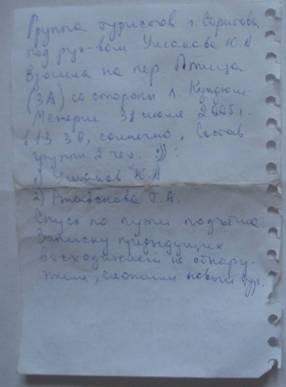 Группа туристов г. Саратова,
под рук-вом Ушакова Ю.А
взошла на пер. Птица
(3А) со стороны л.
июля 2005 г.
в 13.30, солнечно. Состав
группы 2 чел. :))
1) Ушаков Ю.А
2) Г.А.
Спуск по пути подъёма
Записку предыдущих
восходителей не обнару-
жили, сложили новый тур.